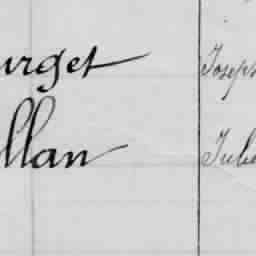 urget Joseph
llan Juli